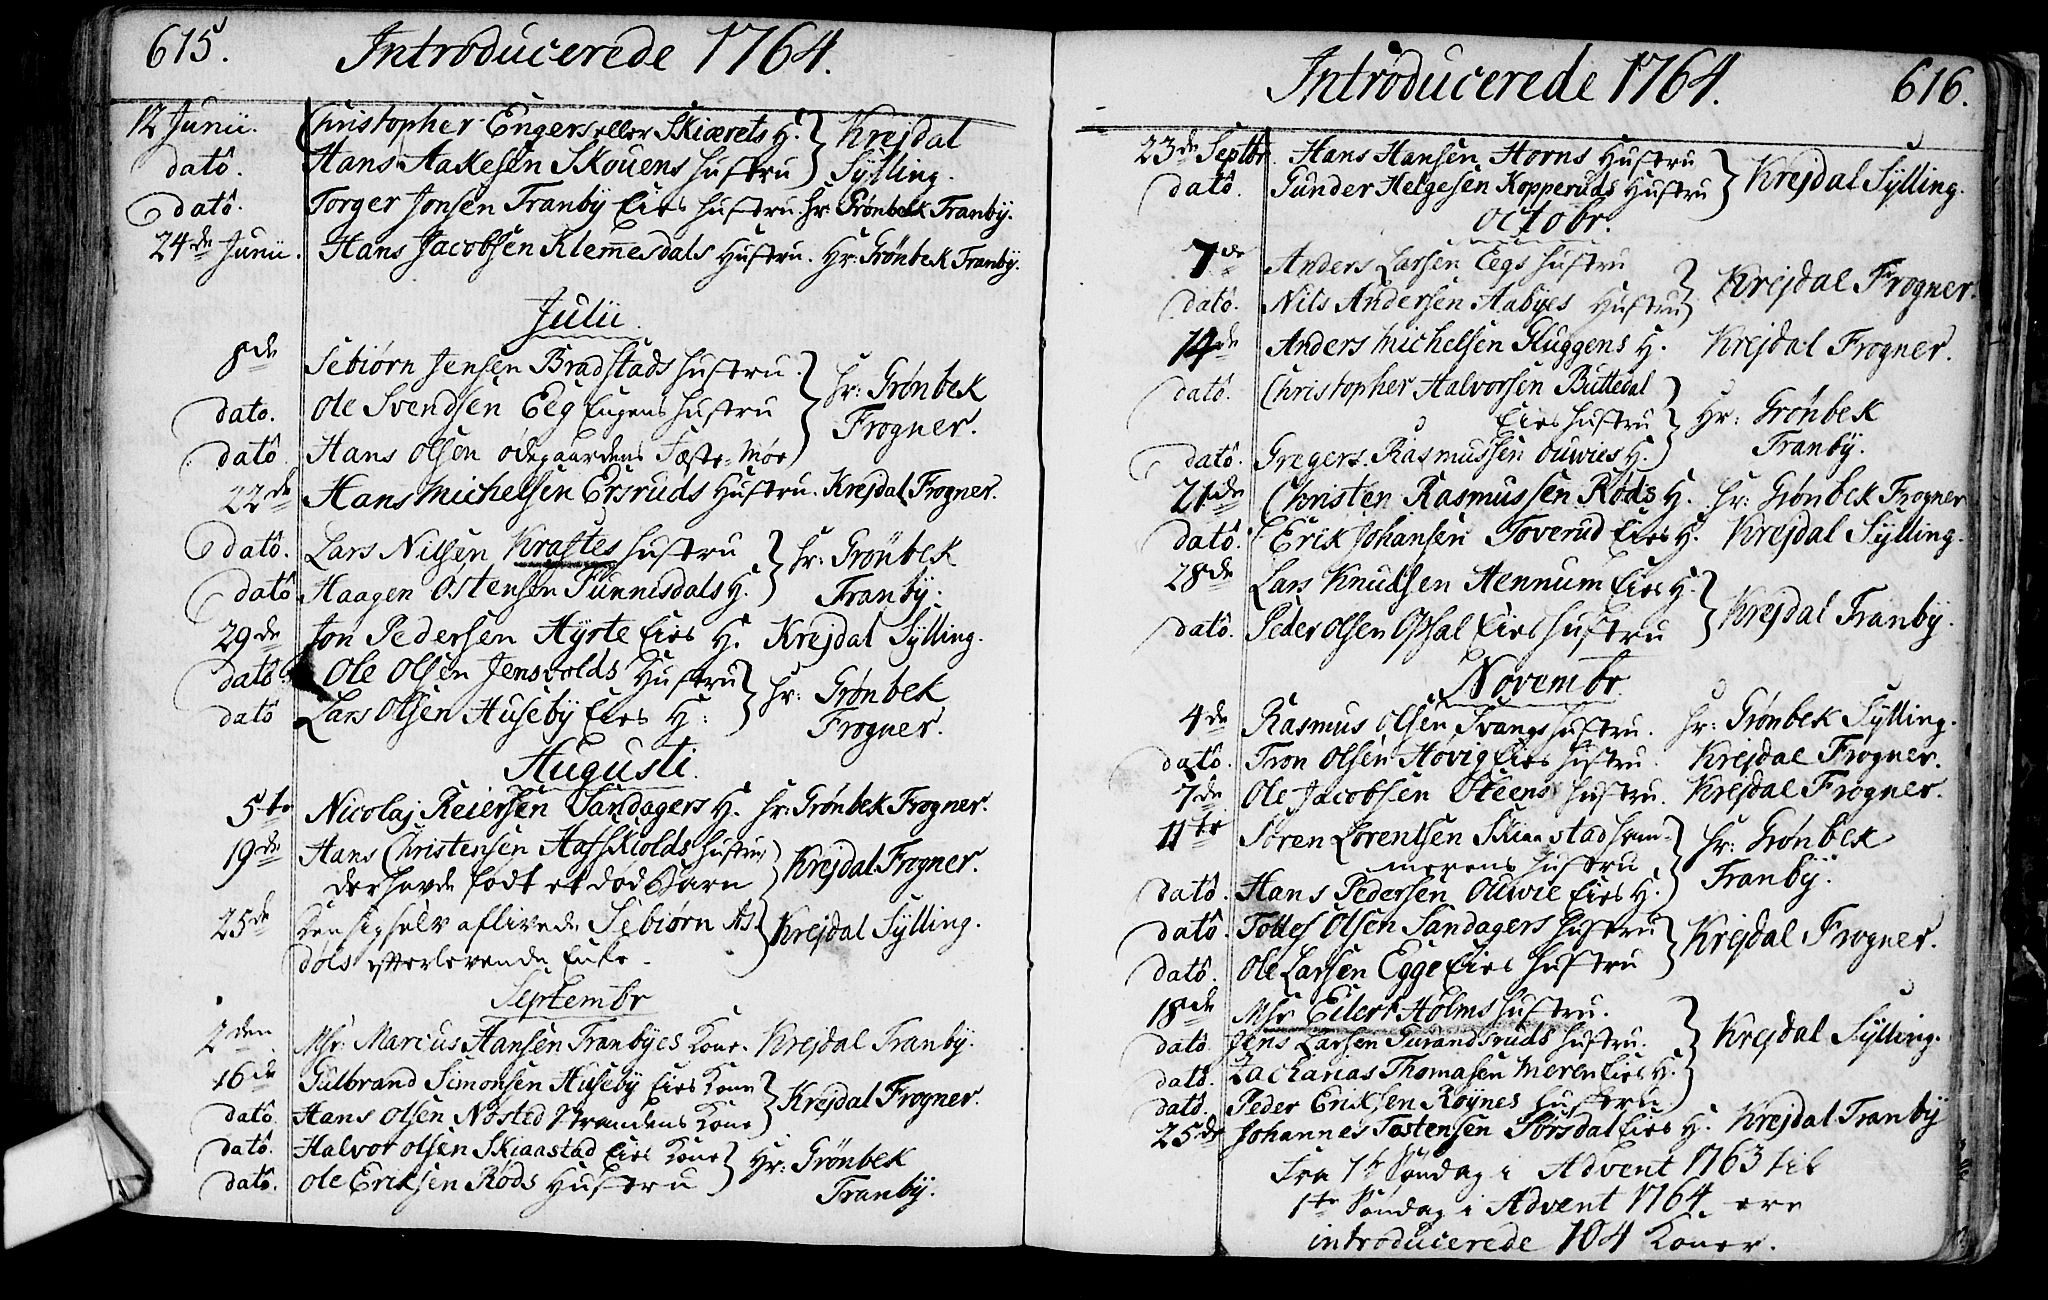 615. Introducerede 1764.
12 Junii. Christopher Engers eller Skiærets H. } Krejdal
dato. Hans Aakesen Skouens Hustru } Sylling.
dato. Torger Jonsen Tranby Eies Hustru. Hr. Grönbek Tranby.
24de Junii. Hans Jacobsen Klemesdals Hustru. Hr: Grönbek Tranby.
Julii.
8de Sebiørn Jensen Bradstads Hustru.
dato. Ole Svendsen Eeg Eugens Hustru } Hr: Grönbek
dato Hans Olsen Ødegaardens Fæste-Møe } Frogner.
22de Hans Michelsen Ersruds Hustru. Krejdal Frogner.
dato. Lars Nilsen Kraftes Hustru } Hr: Grönbek
dato Haagen Ostensen Tunnisdals H. } Tranby.
29de Jon Pedersen Hyrte Eies H. Krejdal Sylling.
dato Ole Olsen Jensvolds Hustru } Hr: Grönbek
dato Lars Olsen Huseby Eies H: } Frogner.
Augusti.
5te Nicolaj Reiersen Sandagers H. Hr: Grönbek Frogner.
19de Hans Christensen Hafskiolds Hustru } Krejdal Frogner.
der hafde födt et död Barn
25de Den sig selv aflivede Sebiørn As- } Krejdal Sylling.
döls efterlevende Enke.
Septembr
2den Msr: Marcus Hansen Tranbyes Kone. Krejdal Tranby.
16de Gulbrand Simonsen Huseby Eies Kone } Krejdal Frogner.
dato Hans Olsen Nösted Strandens Kone
dato. Halvor Olsen Skiaastad Eies Kone } Hr: Grönbek
dato. Ole Eriksen Röds Hustru } Tranby.
Introducerede 1764. 616.
23de Septbr. Hans Hansen Horns Hustru } Krejdal Sylling.
dato. Gunder Helgesen Kopperuds Hustru
Octobr.
7de Anders Larsen Eegs Hustru } Krejdal Frogner.
dato. Nils Andersen Aabyes Hustru
14de Anders Michelsen Gluggens H. Krejdal Frogner.
dato. Christopher Halvorsen Buttedal
Eies Hustru } Hr: Grönbek
dato. Gregers Rasmussen Ouwies H. } Tranby.
21de Christen Rasmussen Röds H. Hr: Grönbek Frogner
dato. Erik Johansen Toverud Eies H. Krejdal Sylling.
28de Lars Knudsen Hennum Eies H. } Krejdal Tranby.
dato. Peder Olsen Opsal Eies Hustru
Novembr.
4de Rasmus Olsen Svangs Hustru. Hr: Grönbek Sylling.
dato. Tron Olsen Hovig Eies Hustru. Krejdal Frogner.
7de Ole Jacobsen Steens Hustru. Krejdal Frogner.
11te Sören Lorentsen Skiaastad Ham- } Hr: Grönbek
merens Hustru
dato. Hans Pedersen Ouwie Eies H. } Tranby.
dato Tolles Olsen Sandagers Hustru } Krejdal Frogner.
dato. Ole Larsen Egge Eies Hustru
18de Msr Eilert Holms Hustru.
dato. Jens Larsen Gurandsruds Hustru. } Krejdal Sylling.
dato. Zacharias Thomasen Meren Eies H.
dato. Peder Eriksen Röynes Hustru.
25de Johannes Tostensen Sörsdal Eies H. Krejdal Tranby
Fra 1te Söndag i Advent 1763 til
1te Söndag i Advent 1764. ere
introducerede 104 Koner.